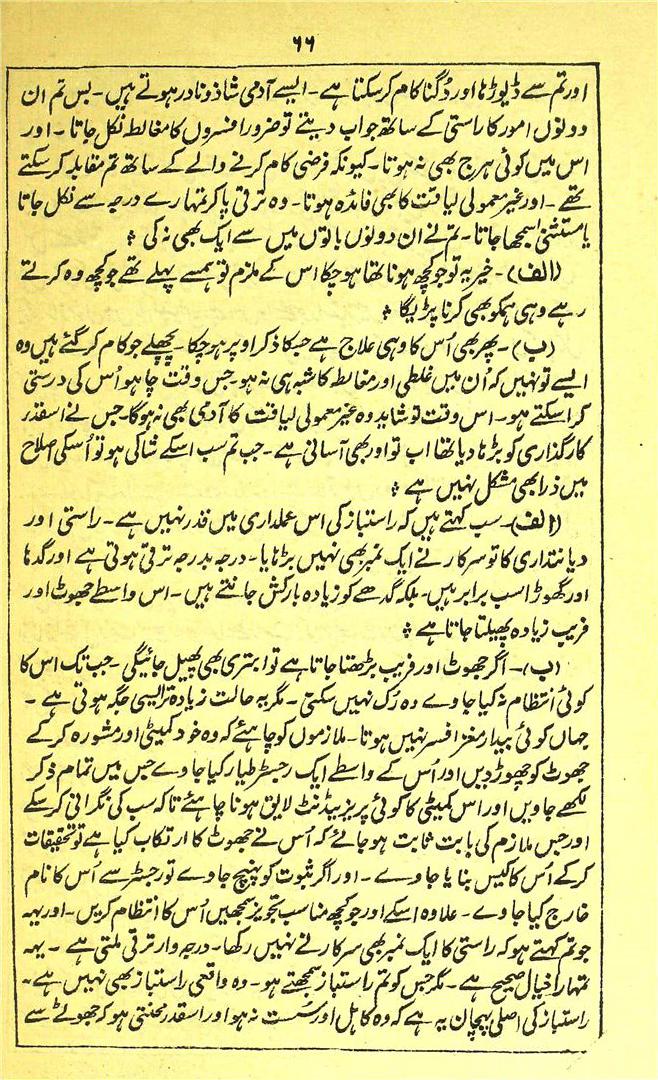 ۶۶
اور تم سے ڈیوڑھا اور دُگنا کام کر سکتا ہے۔ ایسے آدمی شاذ و نادر ہوتے ہیں۔ بس تم ان
دونوں امور کا راستی کے ساتھ جواب دیتے تو ضرور افسروں کا مغالطہ نکل جاتا۔ اور
اس میں کوئی ہرج بھی نہ ہوتا۔ کیونکہ فرضی کام کرنے والے کے ساتھ تم مقابلہ کر سکتے
تھے۔ اور غیر معمولی لیاقت کا بھی فائدہ ہوتا۔ وہ ترقی پا کر تمہارے درجہ سے نکل جاتا
یا مستثنیٰ سمجھا جاتا۔ تم نے ان دونوں باتوں میں سے ایک بھی نہ کی ؞
(الف)۔ خیر یہ تو جو کچھ ہونا تھا ہو چکا اس کے ملزم تو ہمسے پہلے تھے جو کچھ وہ کرتے
رہے وہی ہمکو بھی کرنا پڑیگا ؞
(ب)۔ پھر بھی اُس کا وہی علاج ہے جسکا ذکر اوپر ہو چکا۔ پچھلے جو کام کر گئے ہیں وہ
ایسے تو نہیں کہ اُن میں غلطی اور مغالطہ کا شبہ ہی نہ ہو۔ جس وقت چاہو اُس کی درستی
کرا سکتے ہو۔ اس وقت تو شاید وہ غیر معمولی لیاقت کا آدمی بھی نہ ہوگا۔ جس نے اسقدر
کارگذاری کو بڑہا دیا تھا اب تو اور بھی آسانی ہے۔ جب تم سب اسکے شاکی ہو تو اُسکی اصلاح
میں ذرا بھی مشکل نہیں ہے ؞
(الف)۔ سب کہتے ہیں کہ راستباز کی اس عملداری میں قدر نہیں ہے۔ راستی اور
دیانتداری کا تو سرکار نے ایک نمبر بھی نہیں بڑہایا۔ درجہ بدرجہ ترقی ہوتی ہے اور گدہا
اور گھوڑا سب برابر ہیں۔ بلکہ گدھے کو زیادہ بارکش جانتے ہیں۔ اس واسطے جھوٹ اور
فریب زیادہ پھیلتا جاتا ہے ؞
(ب)۔ اگر جھوٹ اور فریب بڑھتا جاتا ہے تو ابتری بھی پھیل جائیگی۔ جب تک اس کا
کوئی انتظام نہ کیا جاوے وہ رک نہیں سکتی۔ مگر یہ حالت زیادہ تر ایسی جگہ ہوتی ہے۔
جہاں کوئی بیدار مغز افسر نہیں ہوتا۔ ملازموں کو چاہئے کہ وہ خود کمیٹی اور مشورہ کر کے
جھوٹ کو چھوڑ دیں اور اُس کے واسطے ایک رجسٹر طیار کیا جاوے جس میں تمام ذکر
لکھے جاویں اور اس کمیٹی کا کوئی پریزیڈنٹ لایق ہونا چاہئے تاکہ سب کی نگرانی کر سکے
اور جس ملازم کی بابت ثابت ہو جائے کہ اُس نے جھوٹ کا ارتکاب کیا ہے تو تحقیقات
کر کے اُس کا کیس بنایا جاوے۔ اور اگر ثبوت کو پہنچ جاوے تو رجسٹر سے اُس کا نام
خارج کیا جاوے۔ علاوہ اسکے اور جو کچھ مناسب تجویز سمجھیں اُس کا انتظام کریں۔ اور یہہ
جو تم کہتے ہو کہ راستی کا ایک نمبر بھی سرکار نے نہیں رکھا۔ درجہ وار ترقی ملتی ہے۔ یہہ
تمہارا خیال صحیح ہے۔ مگر جس کو تم راستباز سمجھتے ہو۔ وہ واقعی راستباز بھی نہیں ہے۔
راستباز کی اصلی پہچان یہ ہے کہ وہ کاہل اور سُست نہ ہو اور اسقدر محنتی ہو کہ جھوٹے سے